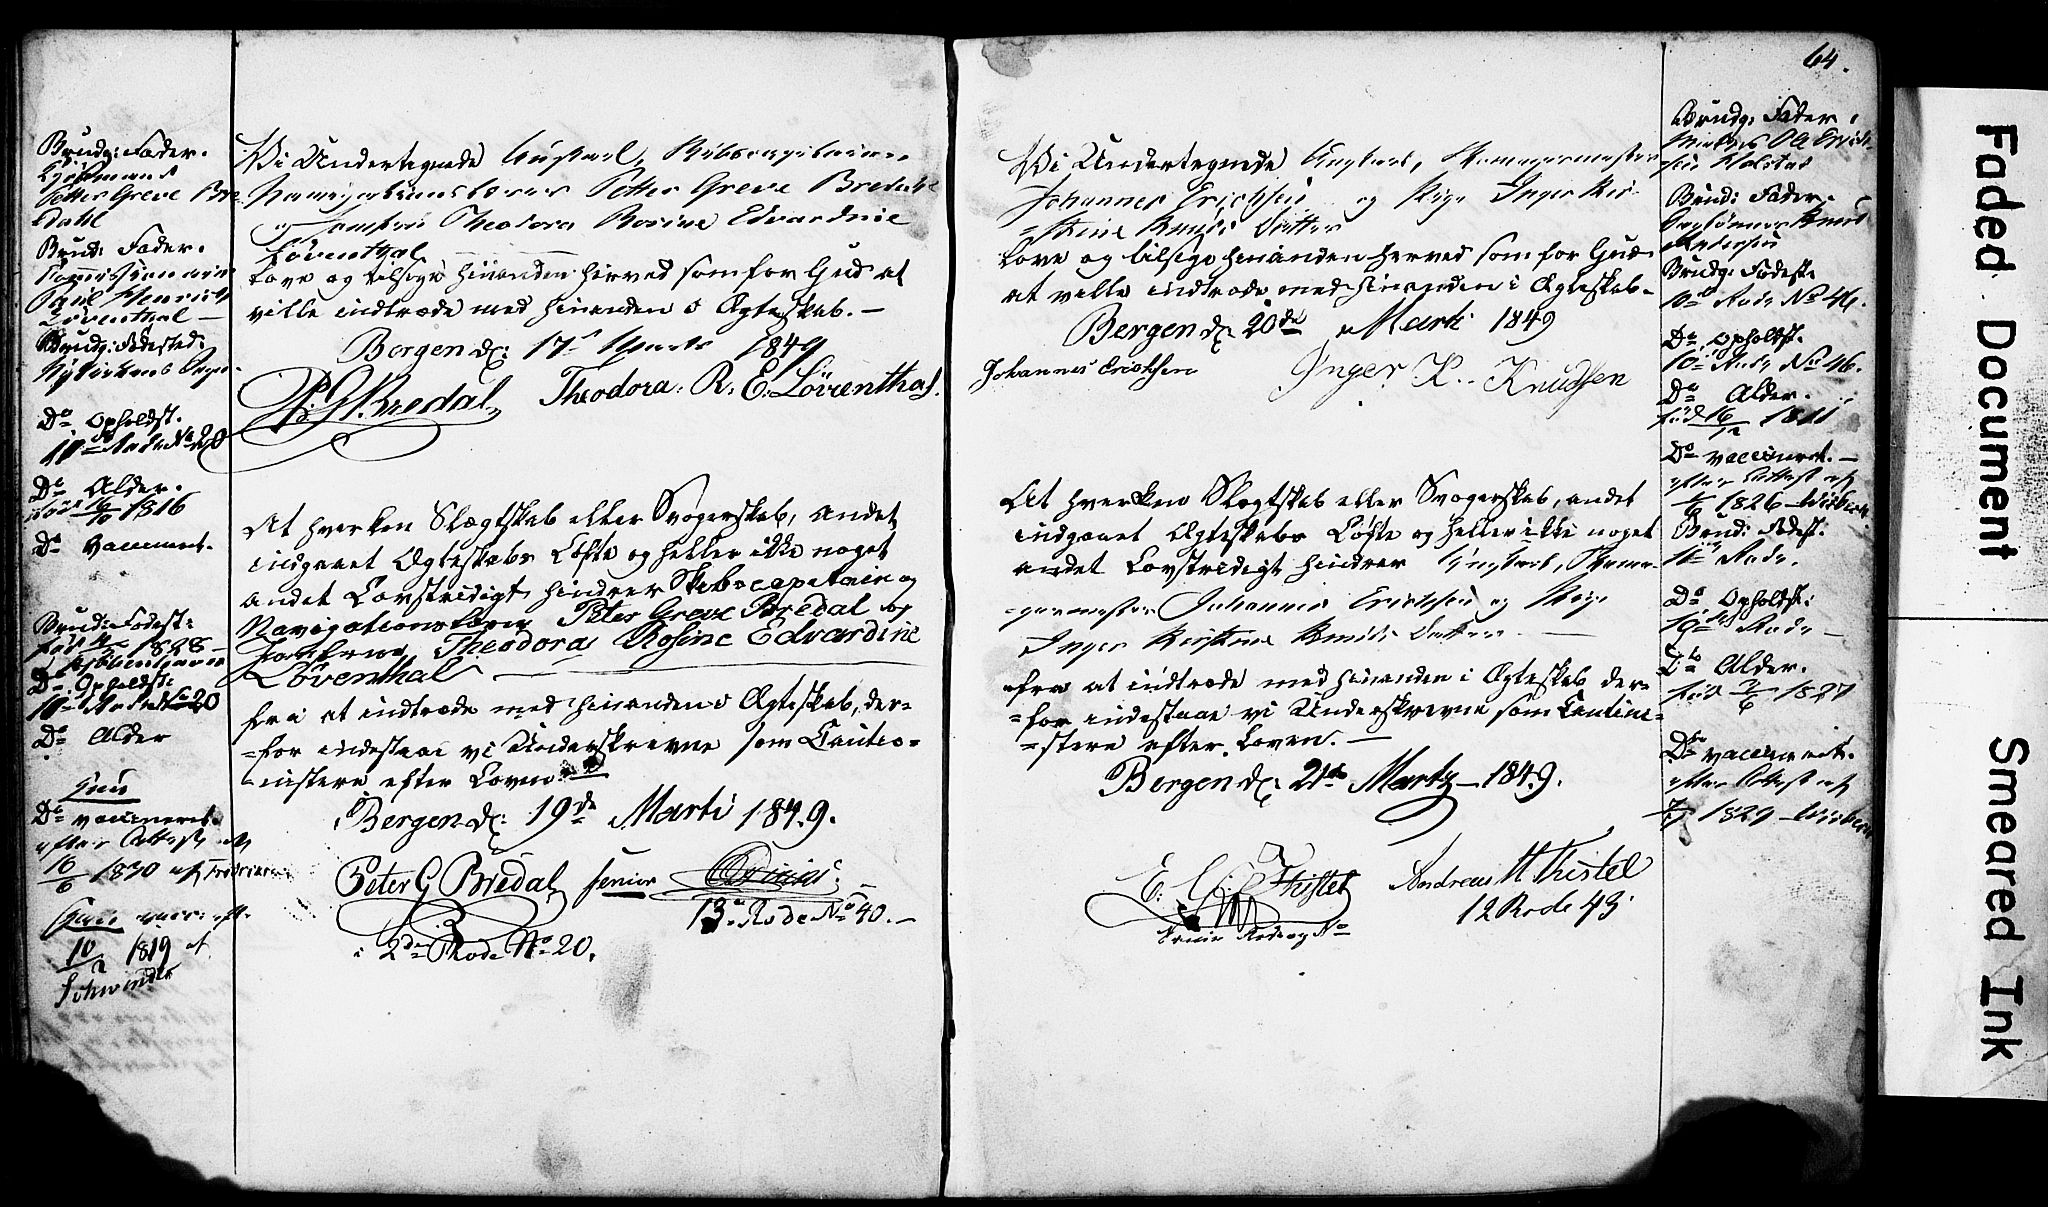 Brudg: Fader.
Petter Greve Bre
dahl
Brud: Fader.
Paul Henrich
Løventhal
Brudg: Fødested:
Nykirkens Sogn
Do Opholdst.
11 Rode No 20
Do Alder.
født 16/10 1816
Do vaccineret.
Brud: Fødest:
1828
Kjøbenhavn
Do Opholdst:
11 Rode No 20
Do Alder
Do vaccineret.
efter Attest af
10/6 1830 af
10/2 1819 af
Vi Undertegnede Skibscapitain
Navigationslærer Petter Greve Bredahl
og Jomfru Theodora Rosine Edvardine
Løventhal
love og tilsige hinanden herved som for Gud at
ville indtræde med hinanden i Ægteskab. —
Bergen d: 17 Marts 1849
P. G. Bredal, Theodora. R. E. Løventhal.
At hverken Slægtskab eller Svogerskab, andet
indgaaet Ægteskabs Løfte og heller ikke noget
andet Lovstridigt hindrer Skibscapitain og
Navigationslærer Peter Greve Bredal og
Jomfrue Theodora Rosine Edvardine
Løventhal —
fra at indtræde med hinanden i Ægteskab, der-
-for indestaae vi Underskrevne som Cautio-
-nistere efter Loven
Bergen d: 19de Marti 1849.
Peter G Bredal senior
13 Rode No 40. —
i 2den Rode No 20.
64.
Vi Undertegnede Ungkarl,
Johannes Erichsen og Pige Inger Kir-
-stine Knuds Datter
love og tilsige hinanden herved som for Gud
at ville indtræde med hinanden i Ægteskab-
Bergen d: 20de Marti 1849
Johannes Erichsen Inger K. Knudsen
At hverken Slægtskab eller Svogerskab, andet
indgaaet Ægteskabs Løfte og heller ikke noget
andet Lovstridigt hindrer Ungkarl,
Johannes Erichsen og Pige
Inger Kirstine Knuds Datter —
fra at indtræde med hinanden i Ægteskab der-
-for indestaae vi Underskrevne som Cautioni-
-stere efter Loven. —
Bergen d: 21de Marty 1849.
Thistel Andreas H Thistel
12 Rode 43.
Rode og No
Brudg: Fader.
Ole Erich-
sen
Brud: Fader.
Knud
Andersen
Brudg: Fødest:
10de Rode No 46.
Do Opholdst.
10 Rode No 46.
Do Alder.
født 16/12 1811
Do vaccineret. —
efter Attest af
1826 Wisbech
Brud: Fødest:
Rode.
Do Opholdst:
10 Rode —
Do Alder.
født 1827
Do vaccineret.
efter Attest af
1829 Wisbech
Faded Document
Smeared Ink